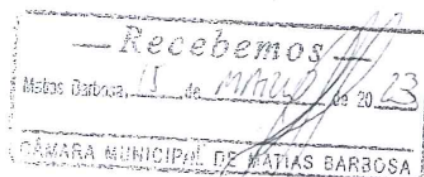 — Recebemos —
Matias Barbosa, 15 de MAIO de 2023
CÂMARA MUNICIPAL DE MATIAS BARBOSA